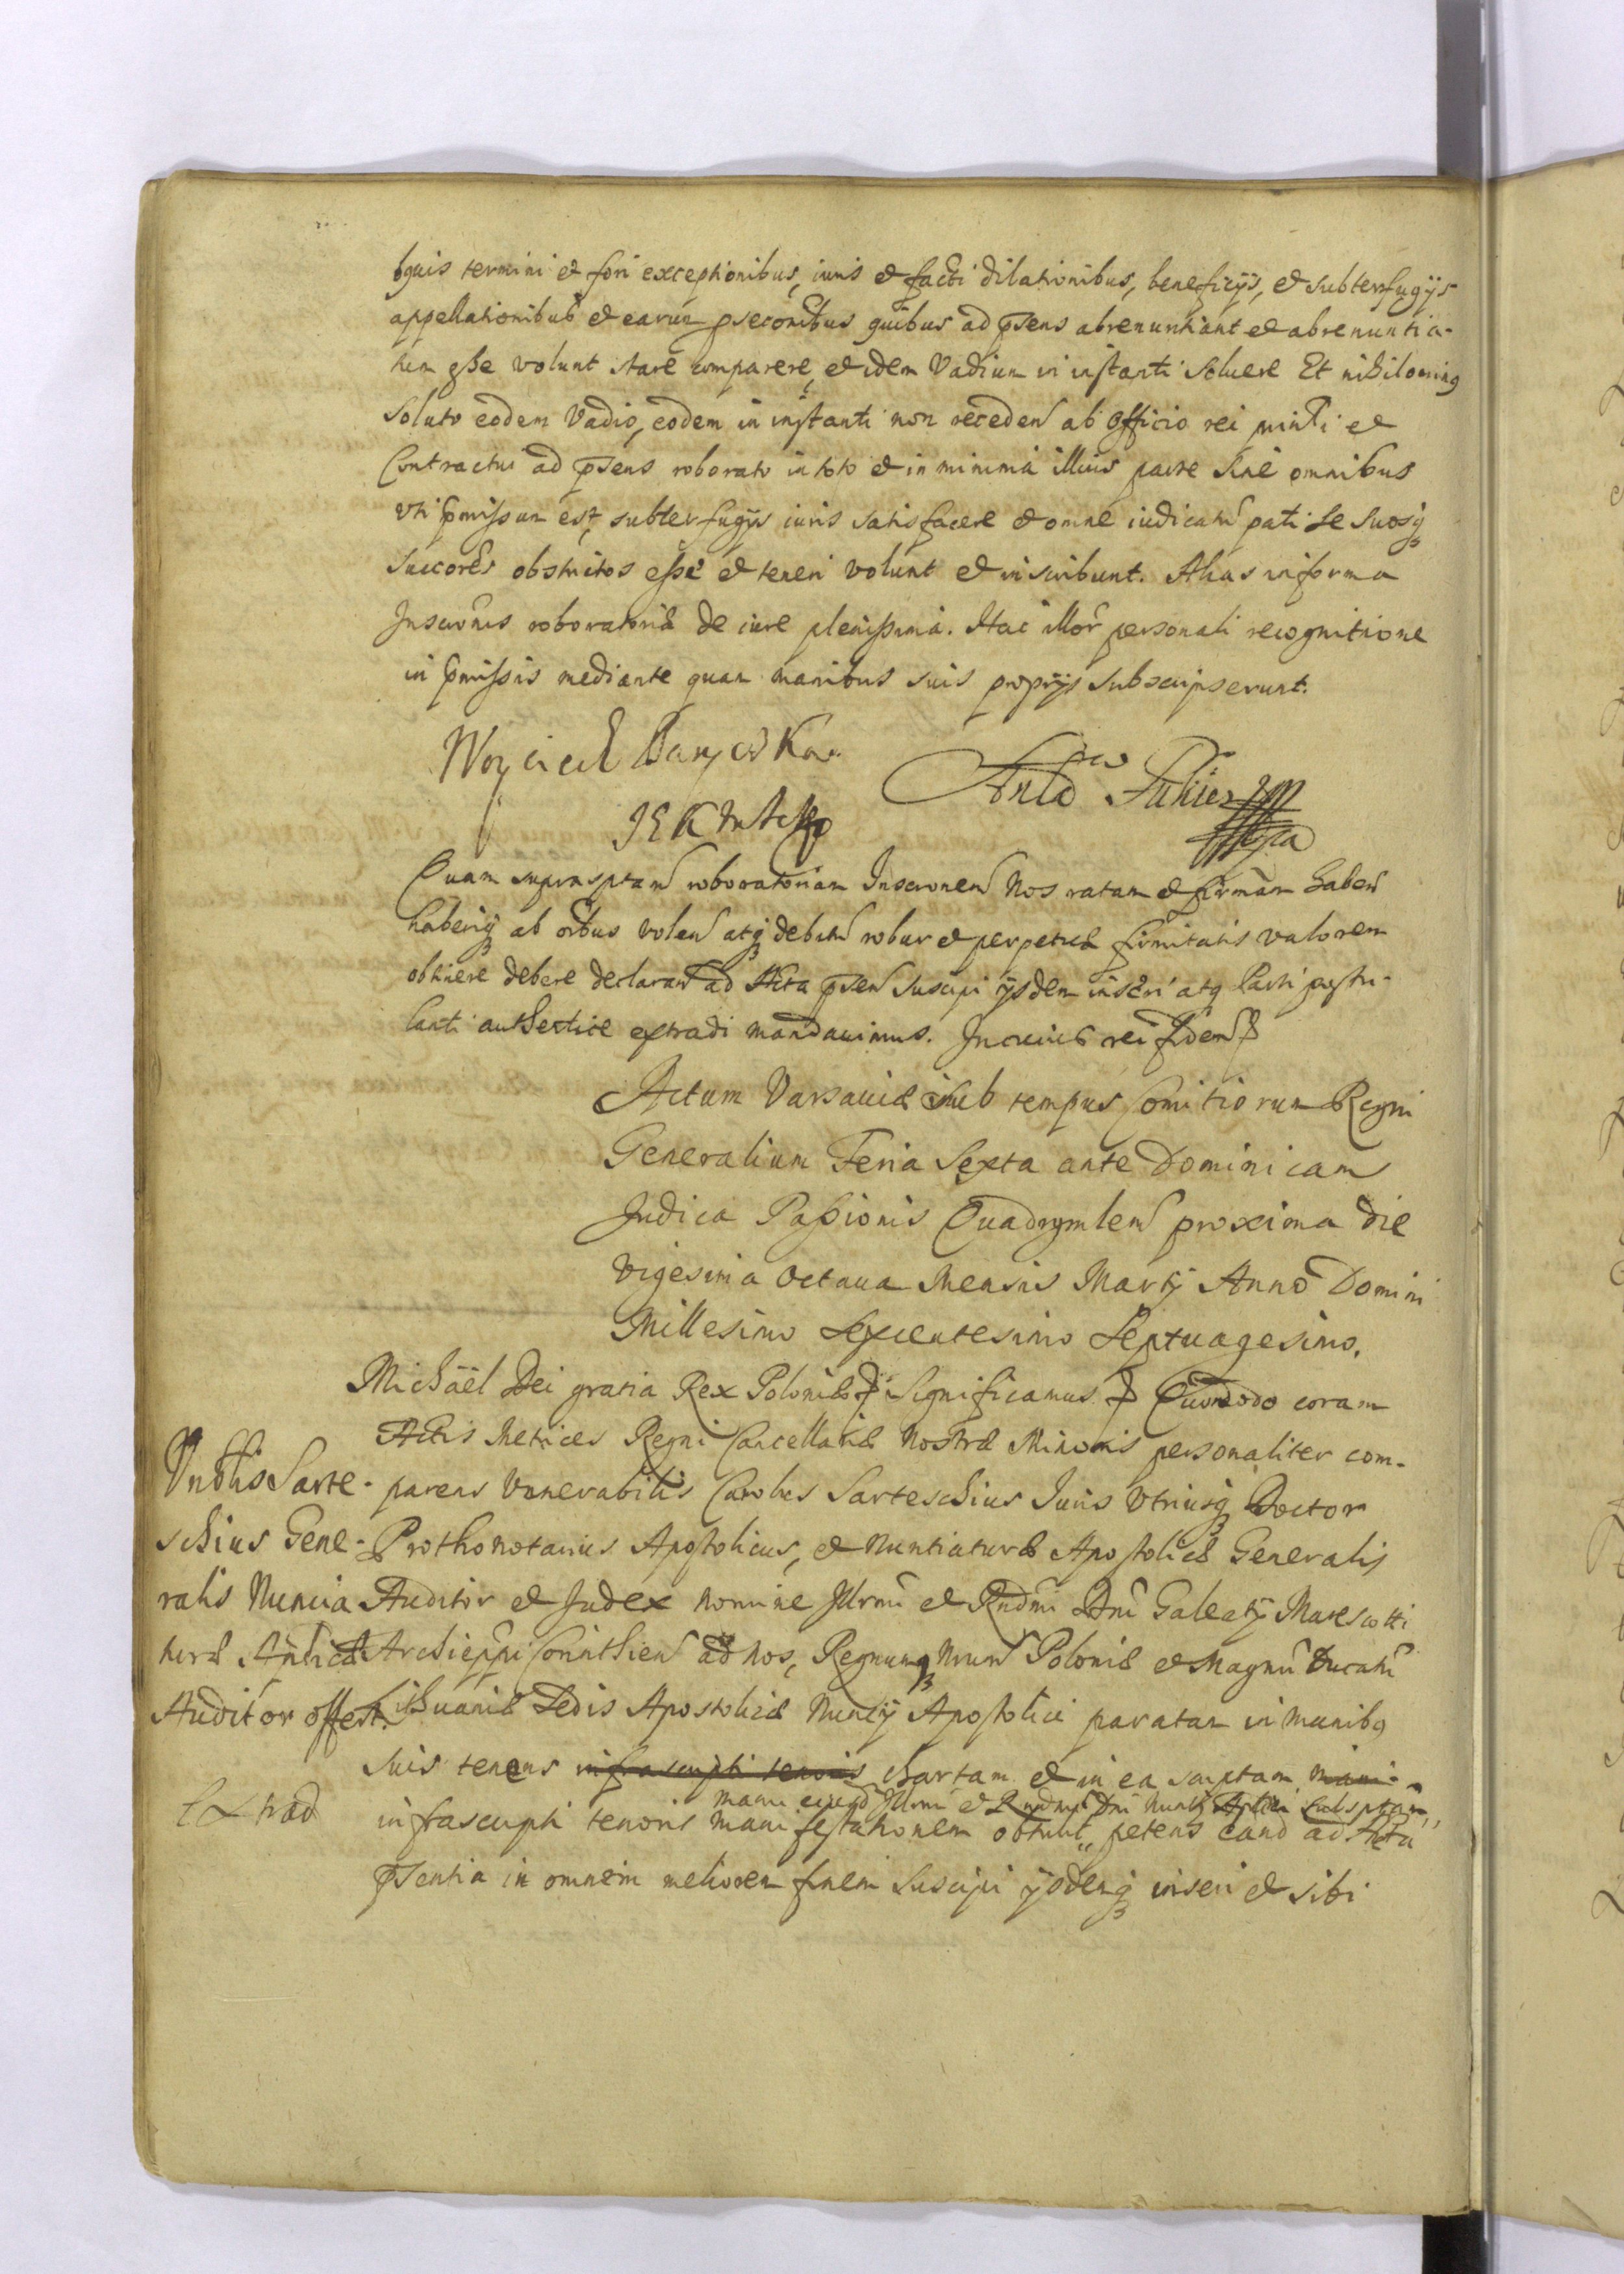 bquis termini et fori exceptionibus, iuris et facti dilationibus, beneficijs, et subterfugijs
appellationibus et earum pseconibus quibus ad psens abrenuntiant et abrenuntia-
tum esse volunt stare comparere, et idem Vadium in instanti soluere Et nihilominus
Soluto eodem Vadio, eodem in instanti non receden ab officio rei et
Contractui ad psens roborato in toto et in minima illius parte sine omnibus
vti pmissum est, subterfugijs iuris satisfacere et omne iudicatu pati se suosq
succores obstrictos esse et teneri volunt et inscribunt. Alias in forma
Inscronis roboratoria de iure plenissima. Hac illor personali recognitione
in pmissis mediante quam manibus suis proprijs subscripserunt.
Woyciech
Quam suprasptam roboratoriam Inscronem Nos ratam et firmam haben
haberiq ab oibus volen atq debitu robur et perpetuæ firmitatis valorem
obtinere debere declaran ad Acta psen suscipi ijsdem inseri atq Parti postu-
lanti authentice extradi mandauimus. In cuius rei fidem
Actum Varsauiæ sub tempus Comitiorum Regni
Generalium Feria Sexta ante Dominicam
Judica Passionis Quadrgmlem proxima die
Vigesima Octaua Mensis Martij Anno Domini
Millesimo Sexcentesimo Septuagesimo.
Michaël Dei gratia Rex Poloniæ Significamus Quomodo coram
Actis Metrices Regni Cancellariæ Nostræ Minoris personaliter com-
parens Venerabilis Carolus Sarteschius Juris Vtriusq Doctor
Prothonotarius Apostolicus, et Nuntiaturæ Apostolicæ Generalis
Auditor et Judex nomine Illrmi et Rndmi Dni Galeatij Marescotti
Archieppi Corinthien ad Nos, Regnumq Nrum Poloniæ et Magnu Ducatu
Lithuaniæ Sedis Apostolicæ Nuncij Apostolici paratam in manibq
suis tenens infrascripti tenoris chartam et in ea scriptam mani-
manu eiusd Illrmi et Rndmi Dni Nuntij Aplici subsptam
infrascripti tenoris manifestationem obtulit petens eand ad Acta
psentia in omnem meliorem finem suscipi ijsdemq inseri et sibi
Vnblis Sarte-
schius Gene-
ralis Nuncia
turæ Aplicæ
Auditor offert.
Extrad